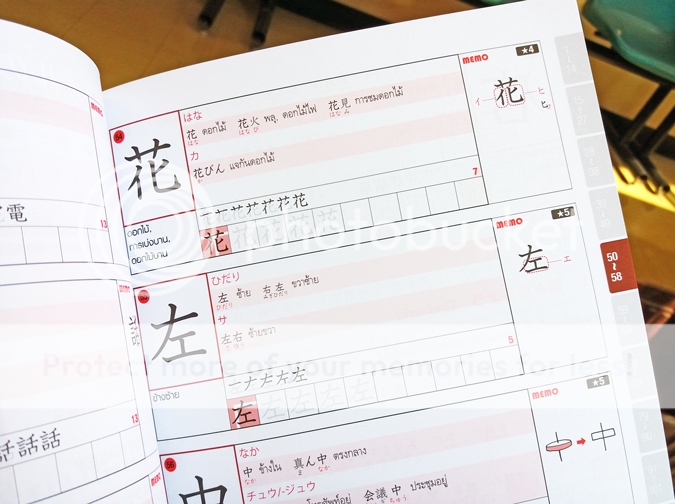 MEMO
電
13
13
話話話
54
花
ดอกไม้,
การเบ่งบาน,
ดอกไม้บาน
はな
花 ดอกไม้ 花火 พลุ, ดอกไม้ไฟ 花見 การชมดอกไม้
はな はなび はなみ
カ
花びん แจกันดอกไม้
か
7
花
MEMO
★4
イ 花 ヒ
ヒ
左
ข้างซ้าย
ひだり
左 ซ้าย 右左 ขวาซ้าย
ひだり みぎひだり
サ
左右 ซ้ายขวา
さゆう
5
一ナ左左左
左
MEMO
★5
左 エ
50
~
58
56
中
なか
中 ข้างใน 真ん中 ตรงกลาง
なか ま なか
チュウ/-ジュウ
会議中 ประชุมอยู่
MEMO
★5
photobucket
Protect more of your memories for less!